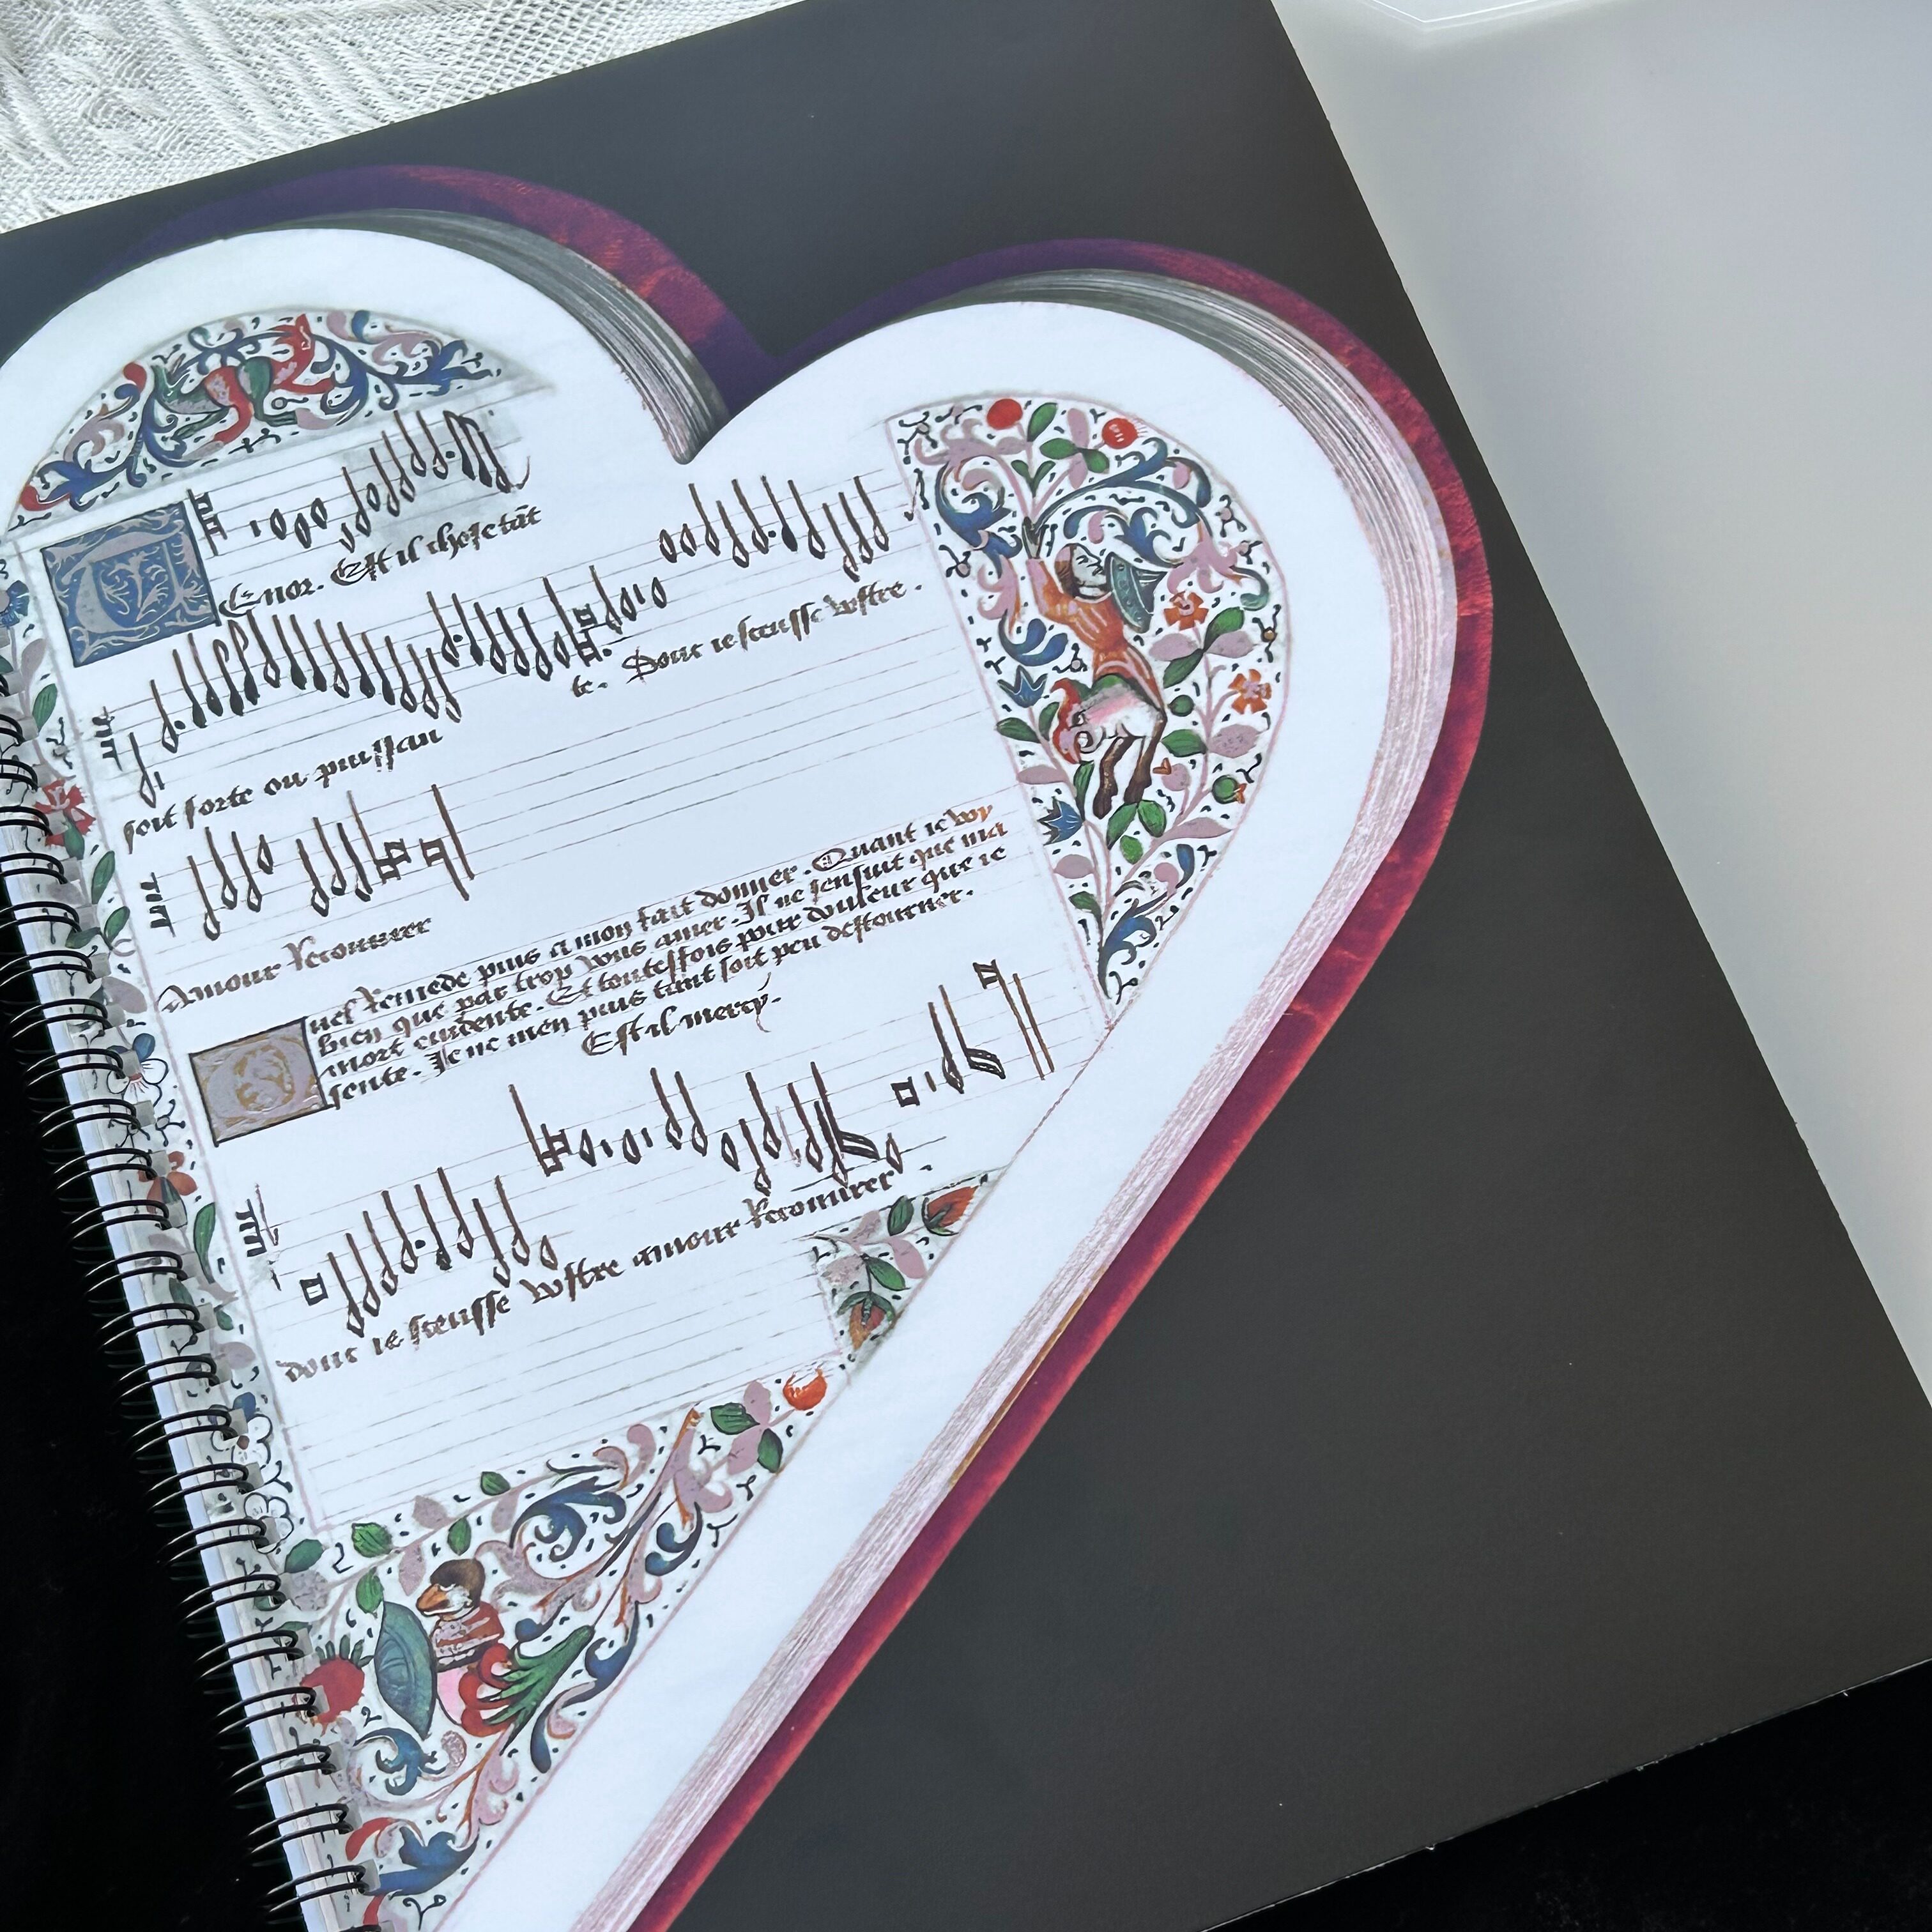 Tenor. Est il chose tāt
te. Dont ie sceusse vostre.
soit forte ou puissan
Amour Recouurer
Quel Remede puis a mon fait donner. Quant ie voy
bien que par trop vous amer. Il ne sensuit que ma
mort euidente. Et toutesfois pour douleur que ie
sente. Je ne men puis tant soit peu destourner.
Est il mercy.
dont ie sceusse vostre amour Recouurer